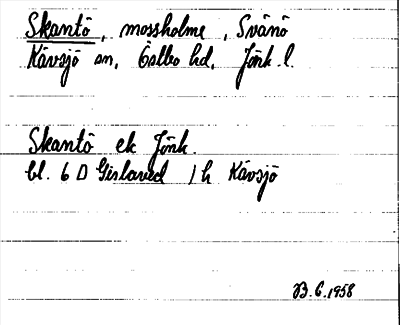 Skantö, mossholme, Svänö
Kävsjö sn, Östbo hd, Jönk. l.
Skantö ek Jönk.
bl. 6 D Gislaved 1h Kävsjö
B. G. 1958